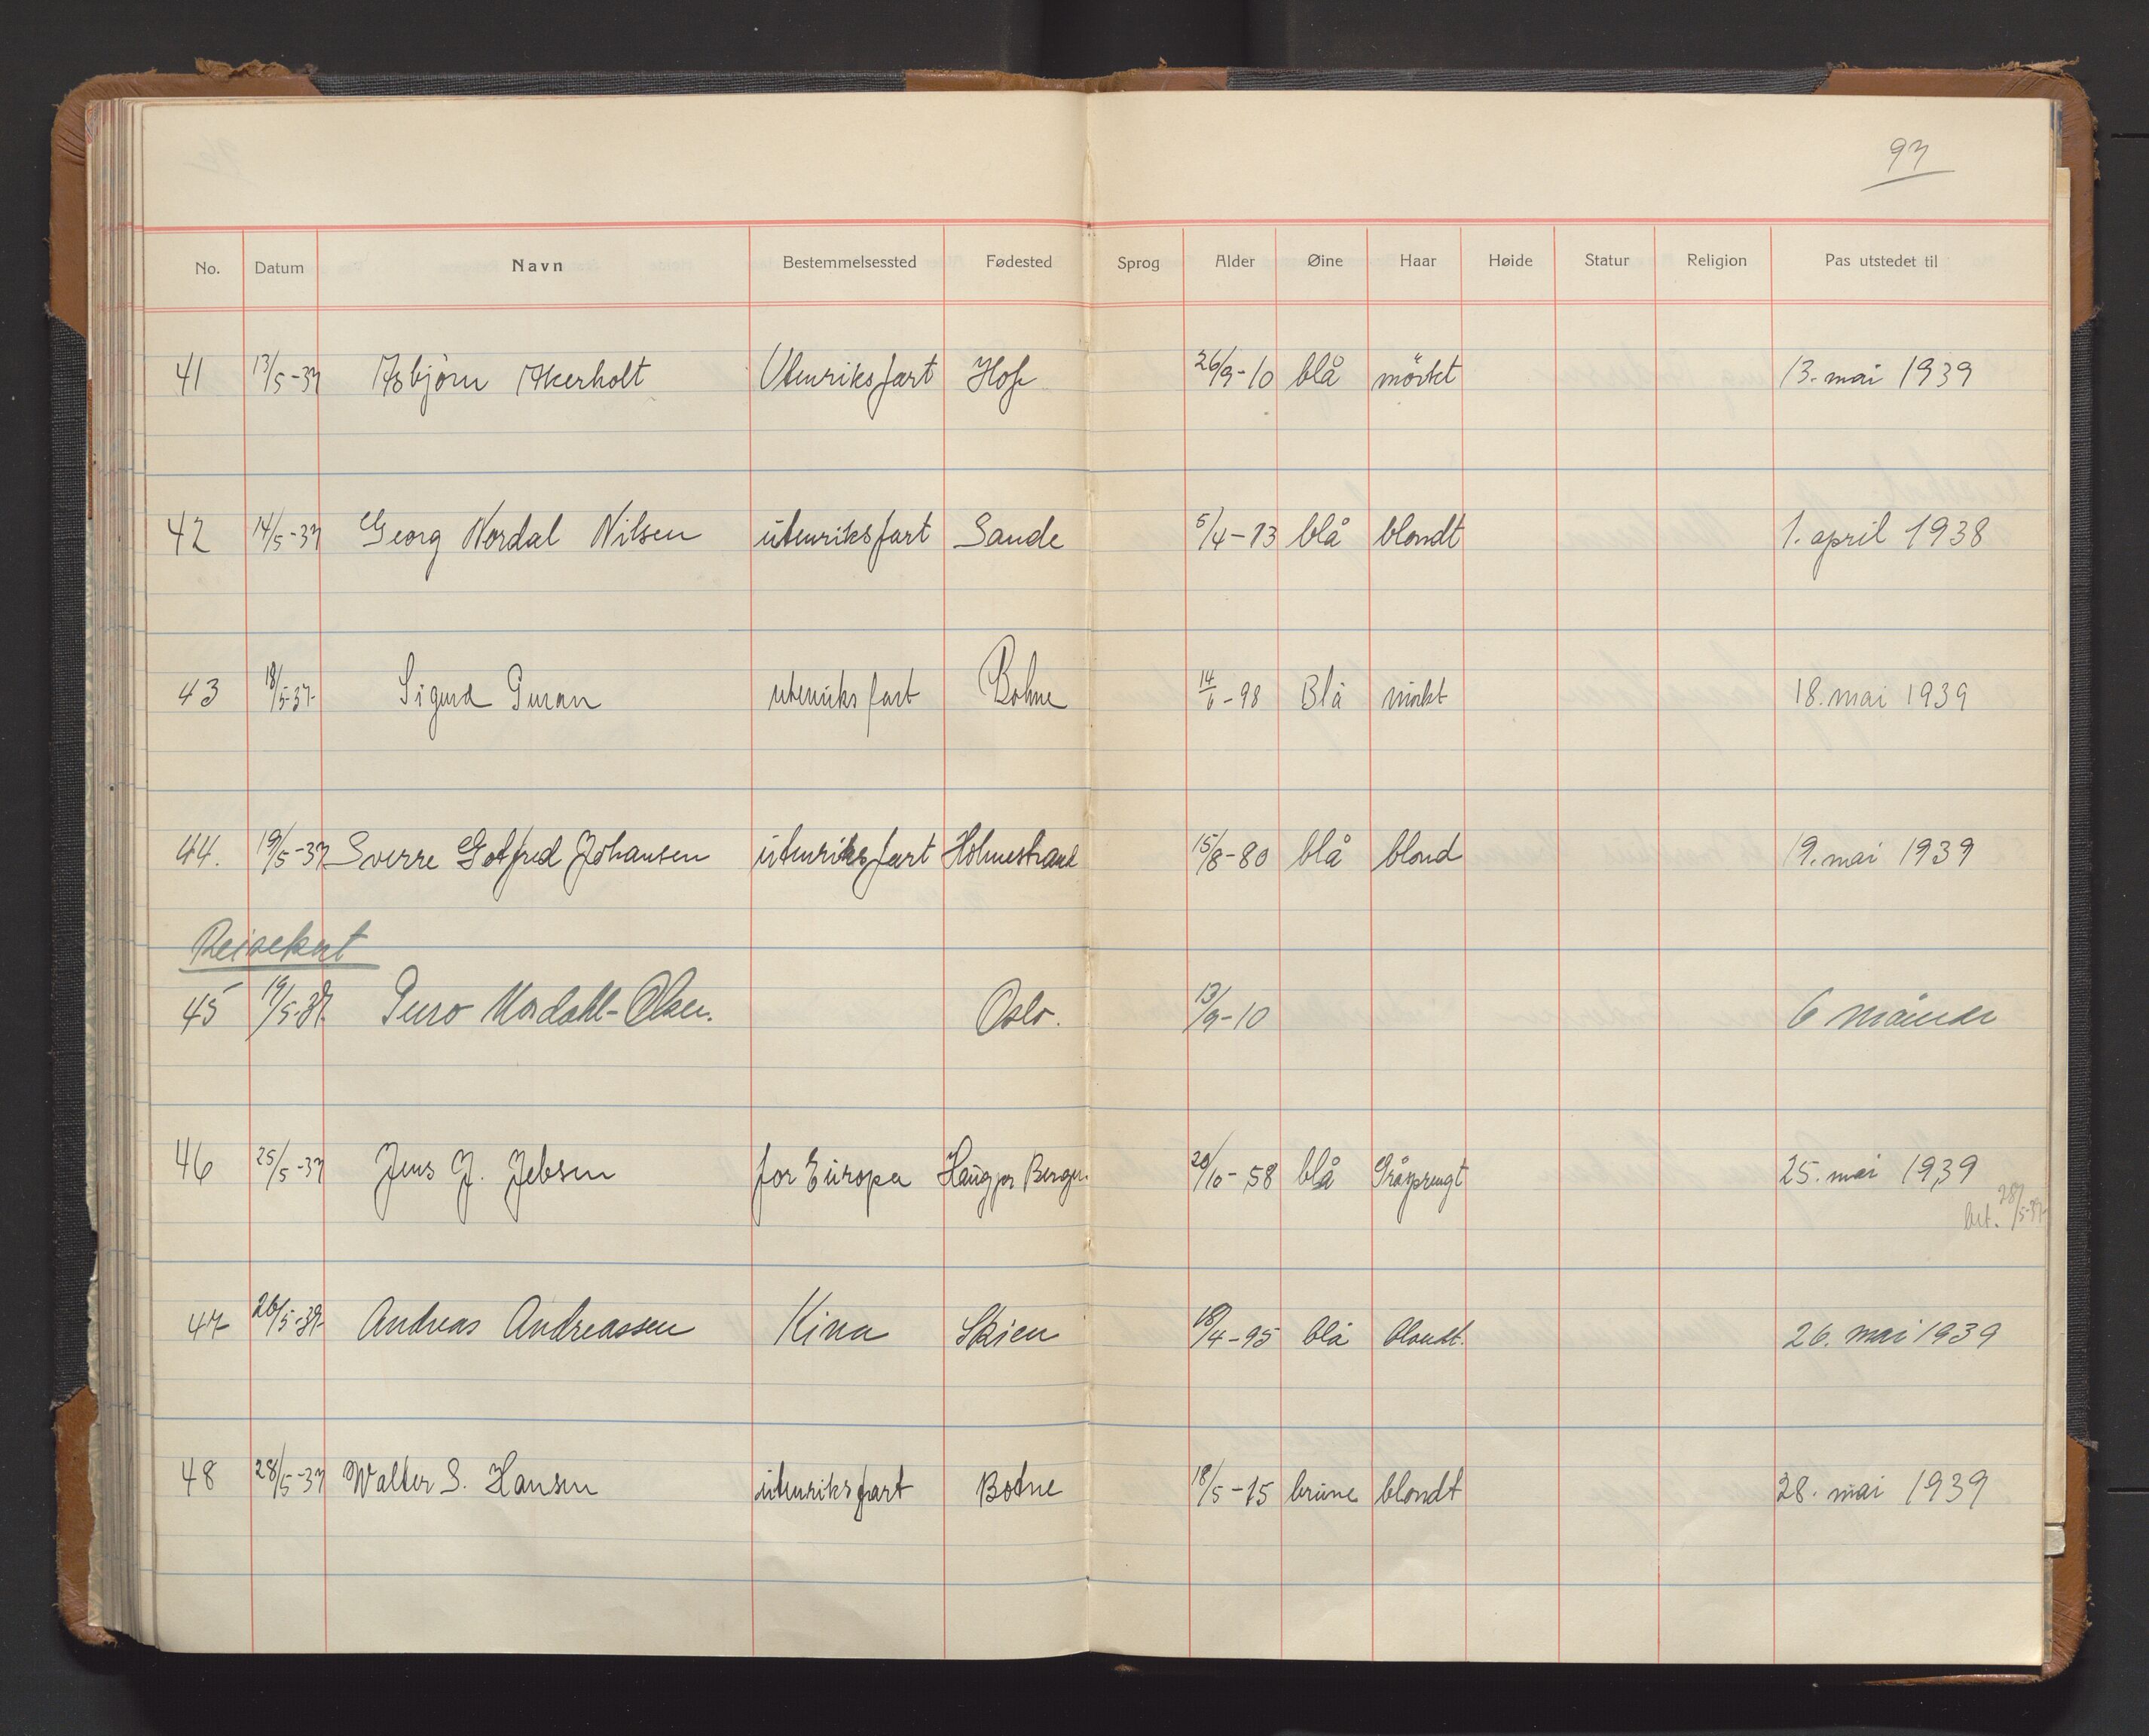 97
No. Datum Navn Bestemmelsessted Fødested Sprog Alder Øine Haar Høide Statur Religion Pas utstedet til
41 13/5-37 Asbjörn Akerholt Utenriksfart Hof 26/9-10 blå mörkt 13. mai 1939
42 14/5-37 Georg Nordal Nilsen utenriksfart Sande 5/4-13 blå blondt 1. april 1938
43 18/5-37. Sigurd Guran utenriksfart Botne 14/6-98 Blå mörkt 18. mai 1939
44. 19/5-37 Sverre Gotfred Johansen utenriksfart Holmestrand 15/8-80 blå blond 19. mai 1939
Reisekort
45 19/5-37. Guro Nordahl-Olsen. Oslo. 13/9-10 6 måneder
46 25/5-37 Jens J. Jebsen for Europa Haug pr Bergen. 20/10-58 blå Gråsprengt 25. mai 1939
28/5-37
47 26/5-37 Andreas Andreassen Kina Skien 18/4-95 blå blondt. 26. mai 1939
48 28/5-37 Walter S. Hansen utenriksfart Botne 18/5-15 brune blondt 28. mai 1939